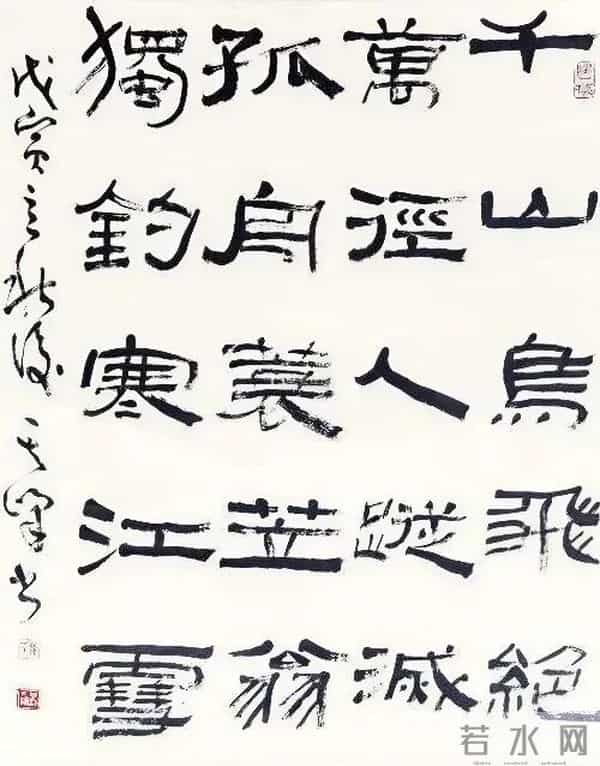 千山鳥飛絕
萬徑人蹤滅
孤舟蓑笠翁
獨釣寒江雪
戊寅之秋後书
若水网